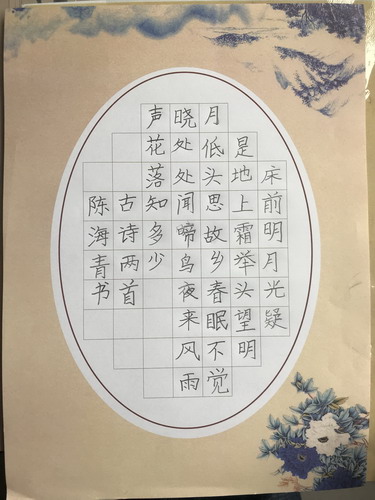 床前明月光疑
是地上霜举头望明
月低头思故乡春眠不觉
晓处处闻啼鸟夜来风雨
声花落知多少
古诗两首
陈海青书